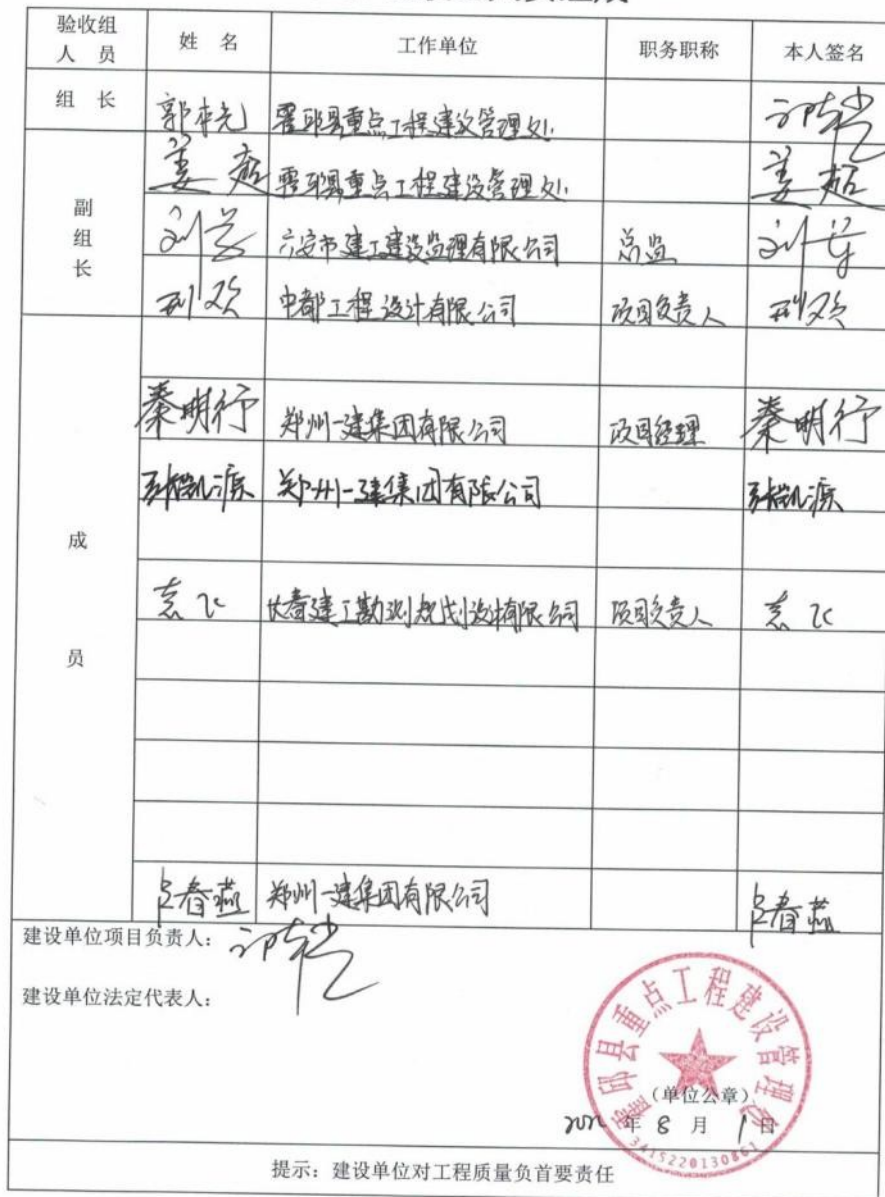 验收组人员 姓 名 工作单位 职务职称 本人签名
组 长 郭桂光 霍邱县重点工程建设管理处
副组长 姜超 霍邱县重点工程建设管理处 姜超
六安市建工建设监理有限公司 总监
邢欢 中都工程设计有限公司 项目负责人 邢欢
成员
秦明行 郑州一建集团有限公司 项目经理 秦明行
郑州一建集团有限公司
袁飞 长春建工勘测规划设计有限公司 项目负责人 袁飞
春燕 郑州一建集团有限公司 春燕
建设单位项目负责人：
建设单位法定代表人：
霍邱县重点工程建设管理处
（单位公章）
2022 年 8 月 1 日
3415220130861
提示：建设单位对工程质量负首要责任